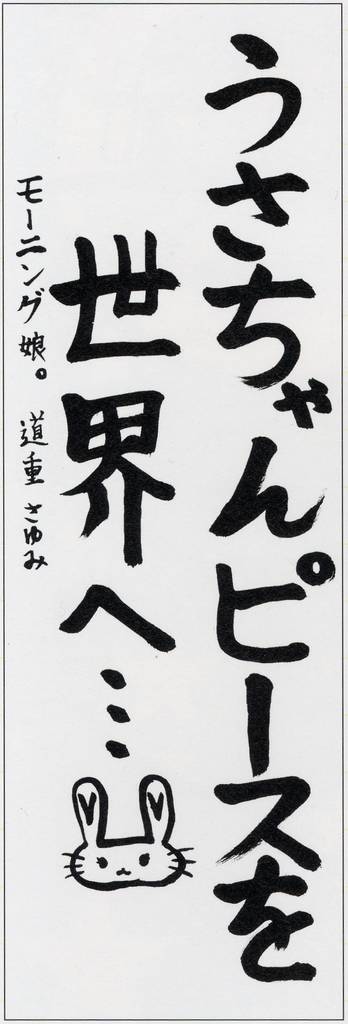 うさちゃんピースを
世界へ…
モーニング娘。 道重 さゆみ